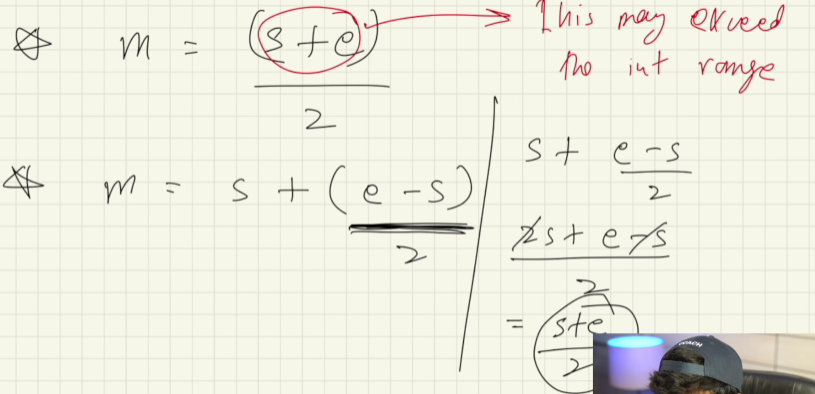 ☆ m = (s+e) / 2 → This may exceed
the int range
☆ m = s + (e-s) / 2
s + e-s / 2
2s + e-s / 2
= s+e / 2
COACH